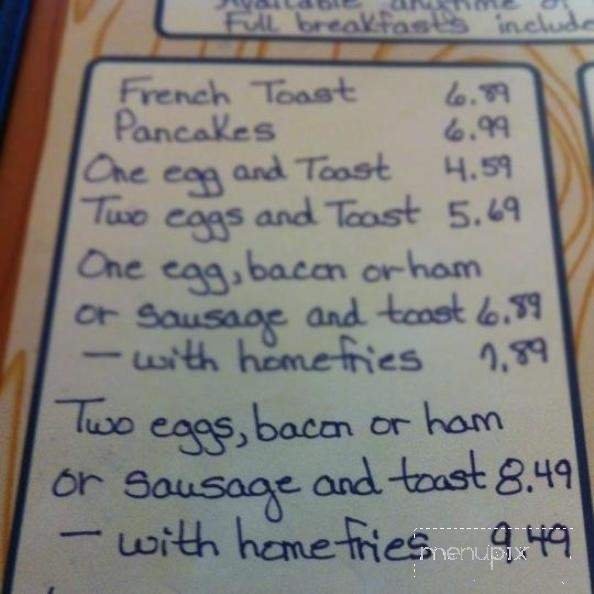 Available anytime
Full breakfasts include
French Toast 6.89
Pancakes 6.99
One egg and Toast 4.59
Two eggs and Toast 5.69
One egg, bacon or ham
or sausage and toast 6.89
— with homefries 7.89
Two eggs, bacon or ham
or sausage and toast 8.49
— with homefries 9.49
menupix